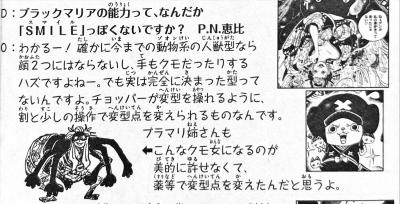 D：ブラックマリアの能力って、なんだか
「SMILE」っぽくないですか？ P.N.恵比
O：わかるー！確かに今までの動物系の人獣型なら
顔2つにはならないし、手もクモだったりする
ハズですよねー。でも実は完全に決まった型って
ないんですよ。チョッパーが変型を操れるように、
割と少しの操作で変型点を変えられるものなんです。
ブラマリ姉さんも
←こんなクモ女になるのが
美的に許せなくて、
薬等で変型点を変えたんだと思うよ。